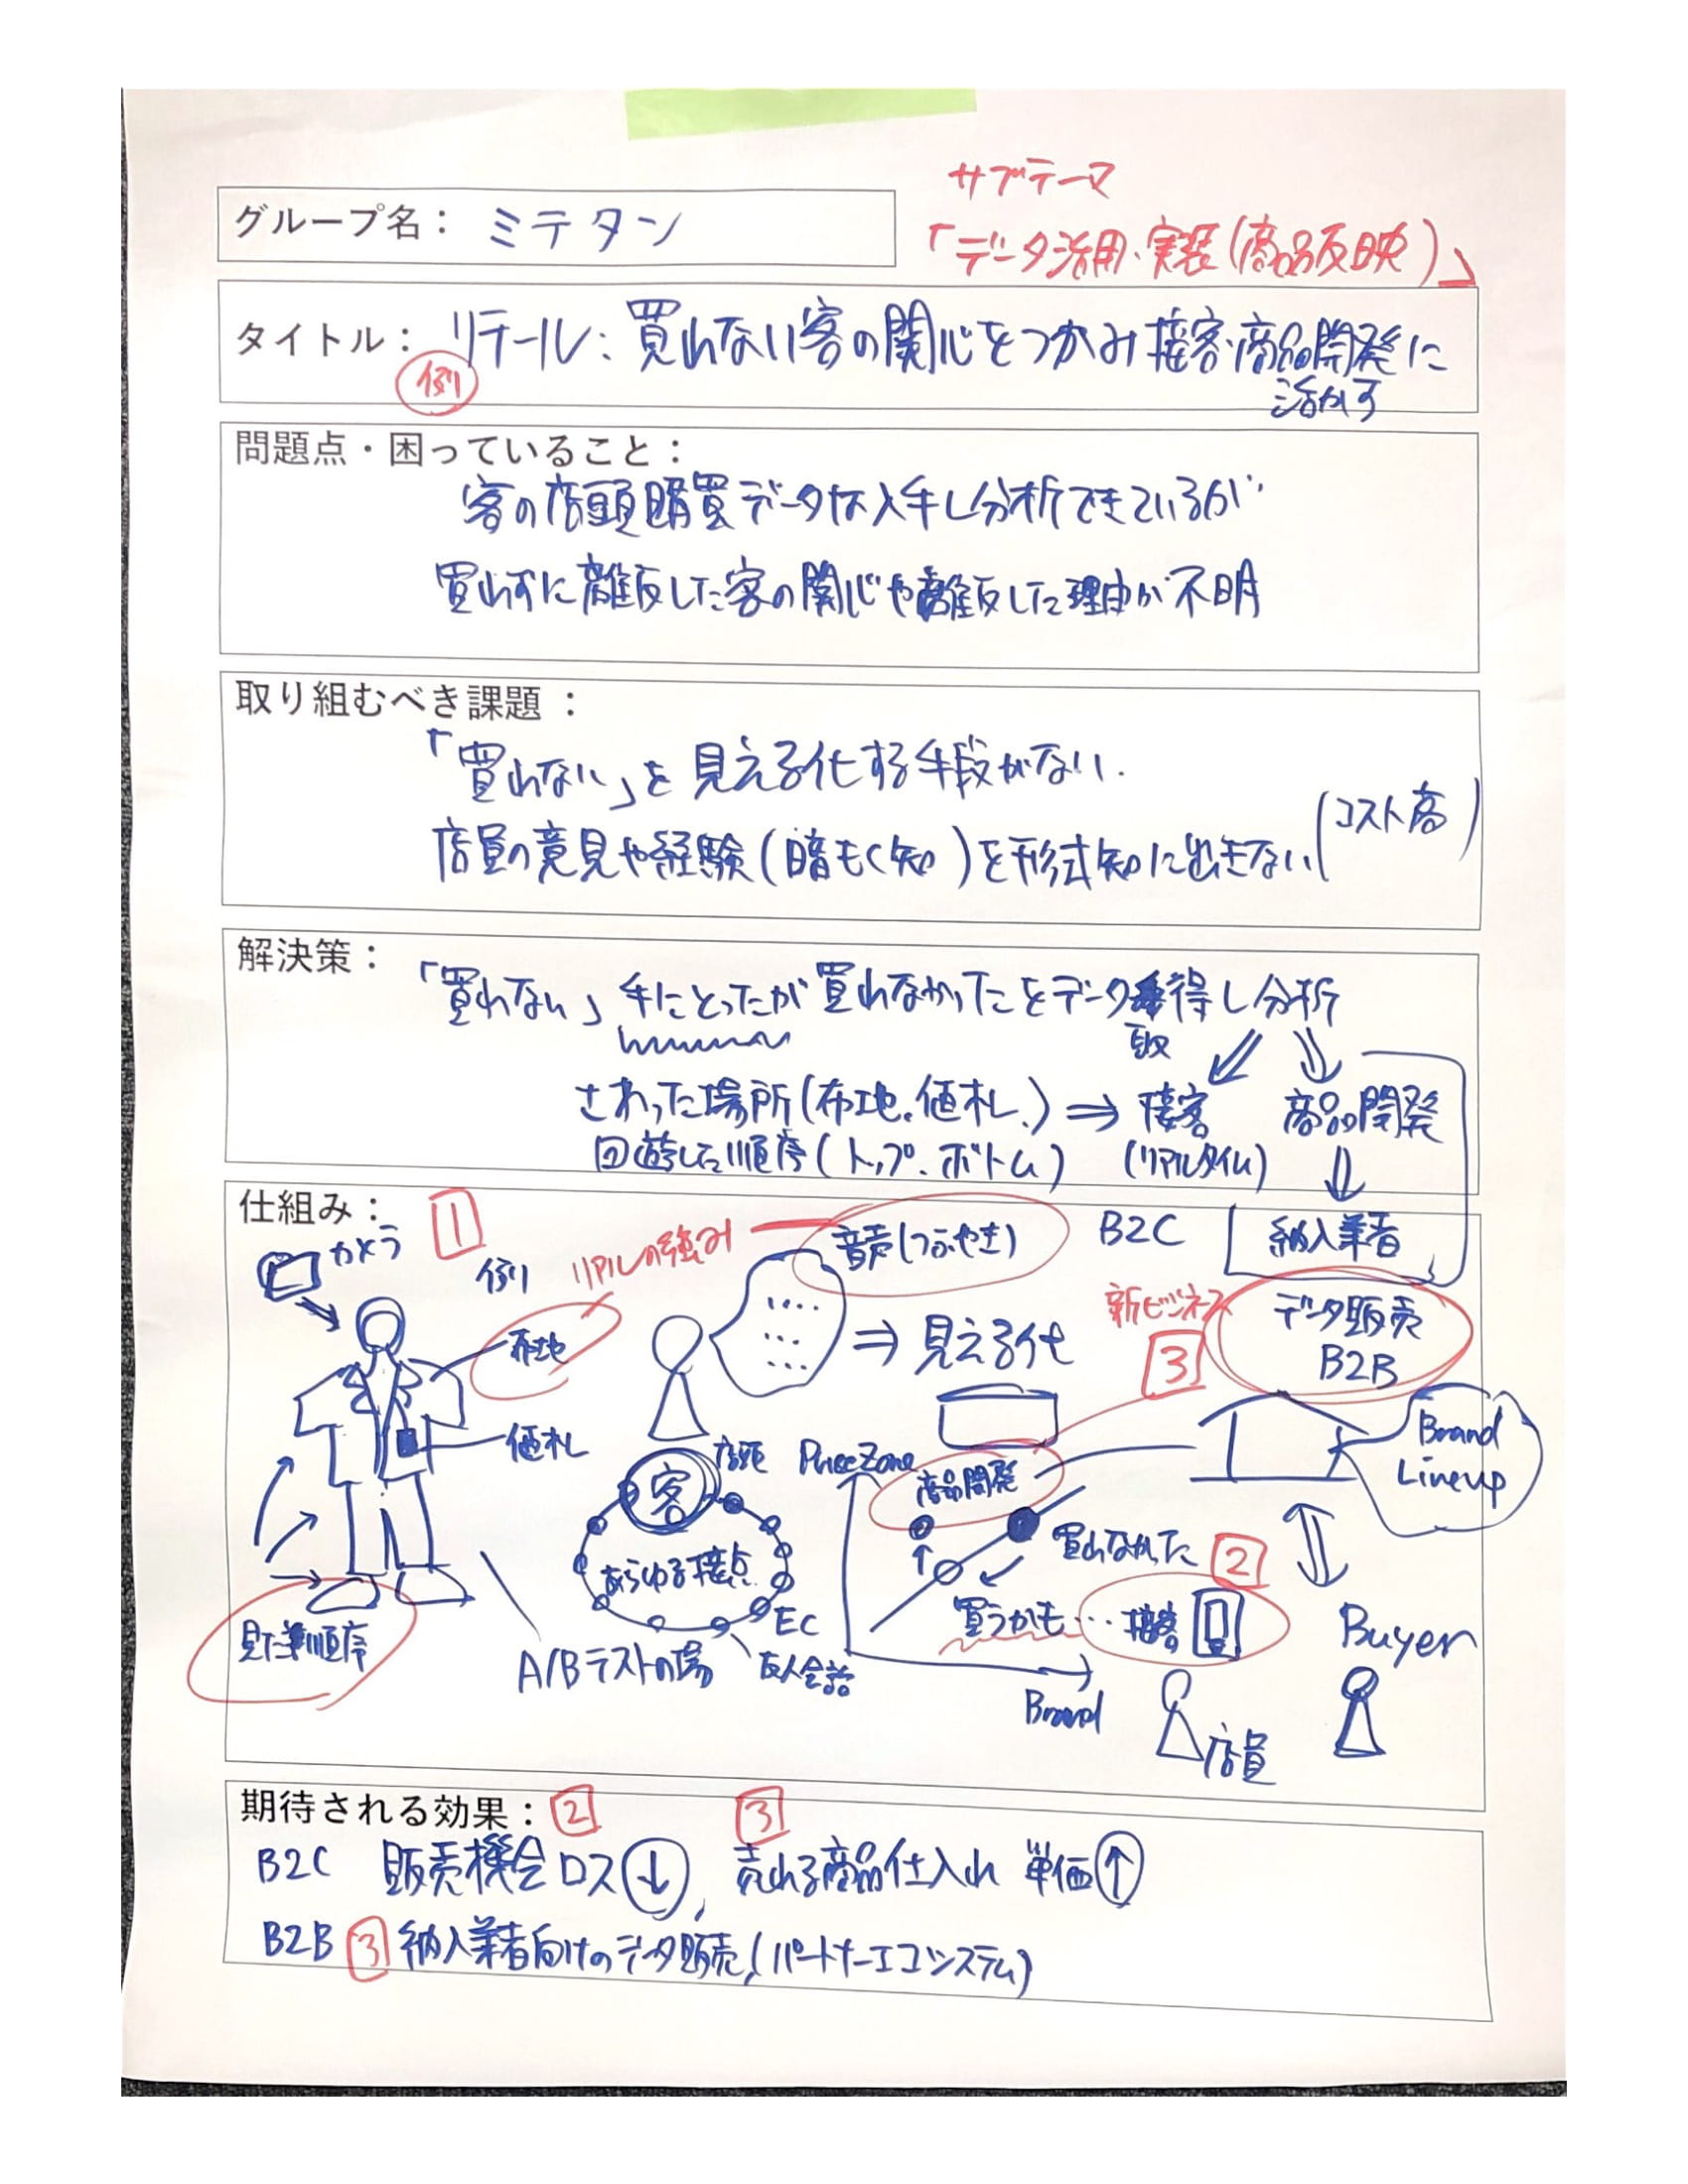 サブテーマ
グループ名： ミテタン
「データ活用・実装(商品反映)」
タイトル： リテール：買わない客の関心をつかみ接客・商品開発に
活かす
例
問題点・困っていること：
客の店頭購買データは入手し分析できているが
買わずに離反した客の関心や離反した理由が不明
取り組むべき課題：
「買わない」を見える化する手段がない.
店員の意見や経験(暗もく知)を形式知に出きない(コスト高)
解決策：
「買わない」手にとったが買わなかったことをデータ取得し分析
さわった場所(布地、値札、)⇒接客 商品開発
回遊した順序(トップ、ボトム) (リアルタイム)
仕組み： 1
カメラ
例
リアルの強み
音声(つぶやき)
B2C
納入業者
布地
⇒見える化
新ビジネス
3
データ販売
B2B
値札
客
店頭
商品開発
Brand
Lineup
あらゆる接点
買わなかった
2
EC
買うかも…接客
見た順序
A/Bテストの場
友人会話
Buyer
Brand
店員
期待される効果： 2 3
B2C 販売機会ロス↓, 売れる商品仕入れ 単価↑
B2B 3 納入業者向けのデータ販売(パートナーエコシステム)